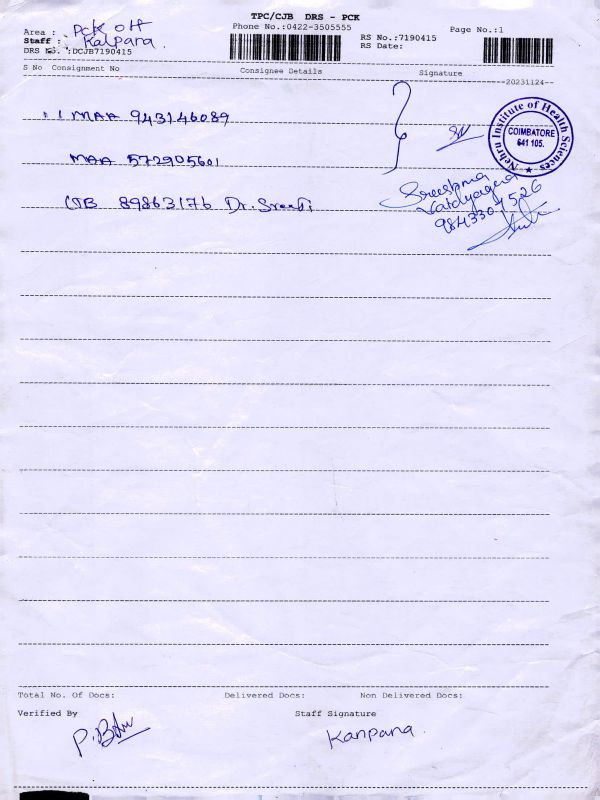 TPC/CJB DRS - PCK
Phone No.:0422-3505555
Page No.:1
Area : PCK off
Staff : Kalpana
DRS No. :DCJB7190415
RS No.:7190415
RS Date:
S No Consignment No Consignee Details Signature
20231124
1 MAA 943146089
MAA 572905601
CJB 89863176 Dr.
Nehru Institute of Health Sciences
COIMBATORE
641 105.
Total No. Of Docs: Delivered Docs: Non Delivered Docs:
Verified By Staff Signature
P. Kanpana